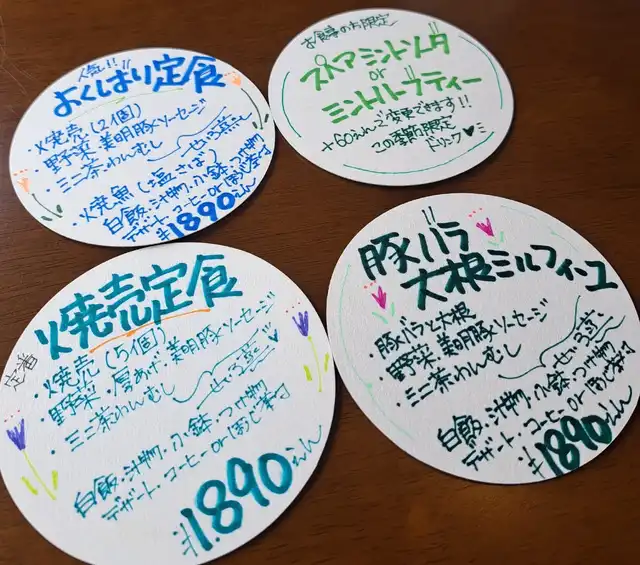 人気!!
よくばり定食
・焼売(2個)
・野菜・美明豚ソーセージ
・ミニ茶わんむし
せいろ蒸し
・焼魚(塩さば)
白飯・汁物・小鉢・つけ物
デザート・コーヒーorほうじ茶付
¥1890えん
お食事の方限定
スペアミントソーダ
or
ミントハーブティー
+60えんで変更できます!!
この季節限定
ドリンク♥
定番
焼売定食
・焼売(5個)
・野菜・厚あげ・美明豚ソーセージ
・ミニ茶わんむし
せいろ蒸し
白飯・汁物・小鉢・つけ物
デザート・コーヒーorほうじ茶付
¥1.890えん
豚バラ
大根ミルフィーユ
・豚バラと大根
・野菜・美明豚ソーセージ
・ミニ茶わんむし
せいろ蒸し
白飯・汁物・小鉢・つけ物
デザート・コーヒーorほうじ茶付
¥1890えん